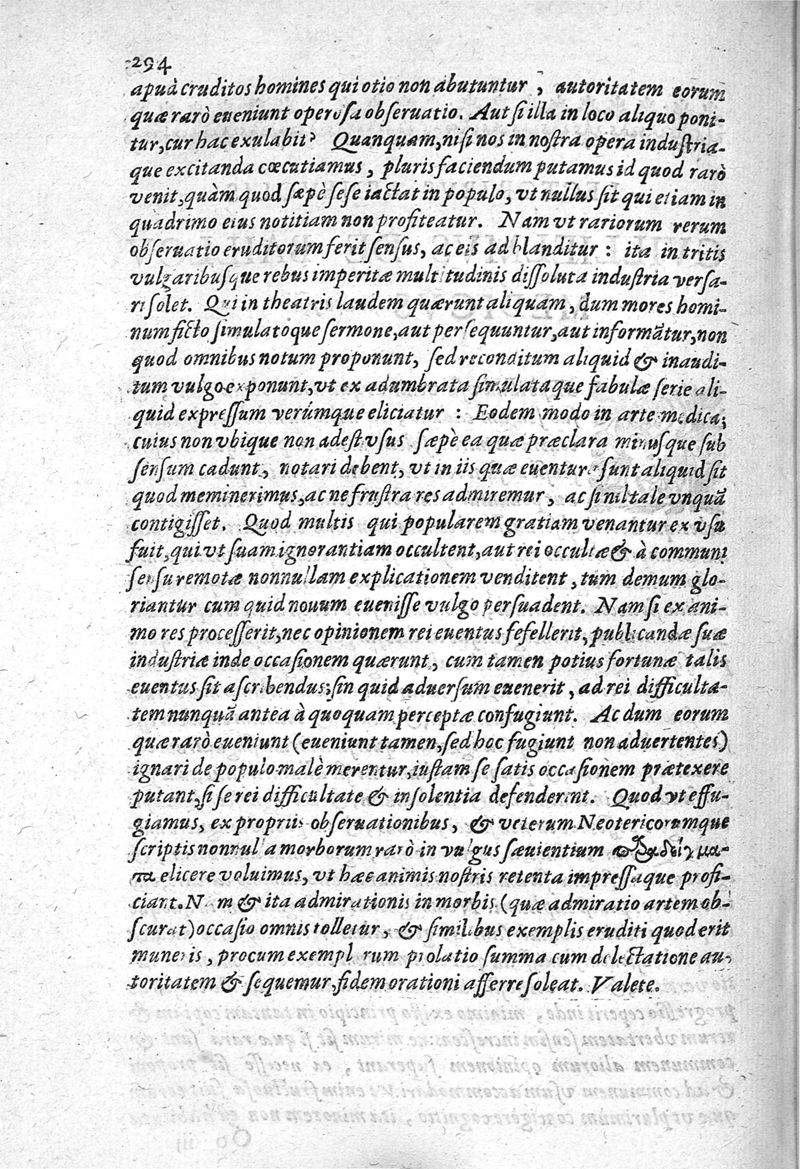 294
apud eruditos homines qui otio non abutuntur, autoritatem eorum
quæ rarò eueniunt operosa obseruatio. Aut si illa in loco aliquo poni-
tur, cur hac exulabit? Quanquam, nisi nos in nostra opera industria-
que excitanda cœcutiamus, pluris faciendum putamus id quod rarò
venit, quàm quod sæpè sese iactat in populo, vt nullus sit qui etiam in
quadrimo eius notitiam non profiteatur. Nam vt rariorum rerum
obseruatio eruditorum ferit sensus, ac eis adblanditur: ita in tritis
vulgaribusque rebus imperitæ multitudinis dissoluta industria versa-
ri solet. Qui in theatris laudem quærunt aliquam, dum mores homi-
num ficto simulatoque sermone, aut persequuntur, aut informãtur, non
quod omnibus notum proponunt, sed reconditum aliquid & inaudi-
tum vulgo exponunt, vt ex adumbrata simulataque fabulæ serie ali-
quid expressum verúmque eliciatur: Eodem modo in arte medica,
cuius non vbique non adest vsus sæpè ea quæ præclara minusque sub
sensum cadunt, notari debent, vt in iis quæ euentura sunt aliquid sit
quod meminerimus, ac ne frustra res admiremur, ac si nil tale vnquã
contigisset. Quod multis qui popularem gratiam venantur ex vsu
fuit, qui vt suam ignorantiam occultent, aut rei occultæ & à communi
sensu remotæ nonnullam explicationem venditent, tum demum glo-
riantur cum quid nouum euenisse vulgo persuadent. Nam si ex ani-
mo res processerit, nec opinionem rei euentus fefellerit, publicandæ suæ
industriæ inde occasionem quærunt, cum tamen potius fortunæ talis
euentus sit ascribendus; sin quid aduersum euenerit, ad rei difficulta-
tem nunquã antea à quoquam perceptæ confugiunt. Ac dum eorum
quæ rarò eueniunt (eueniunt tamen, sed hoc fugiunt non aduertentes)
ignari de populo malè merentur, iustam se satis occasionem prætexere
putant, si se rei difficultate & insolentia defenderint. Quod vt effu-
giamus, ex propriis obseruationibus, & veterum Neotericorumque
scriptis nonnulla morborum rarò in vulgus sæuientium παραδείγμα-
τα elicere voluimus, vt hæc animis nostris retenta impressaque profi-
ciant. Nam & ita admirationis in morbis (quæ admiratio artem ob-
scurat) occasio omnis tolletur, & similibus exemplis eruditi quod erit
muneris, procum exemplorum prolatio summa cum delectatione au-
toritatem & sequemur, fidem orationi afferre soleat. Valete.